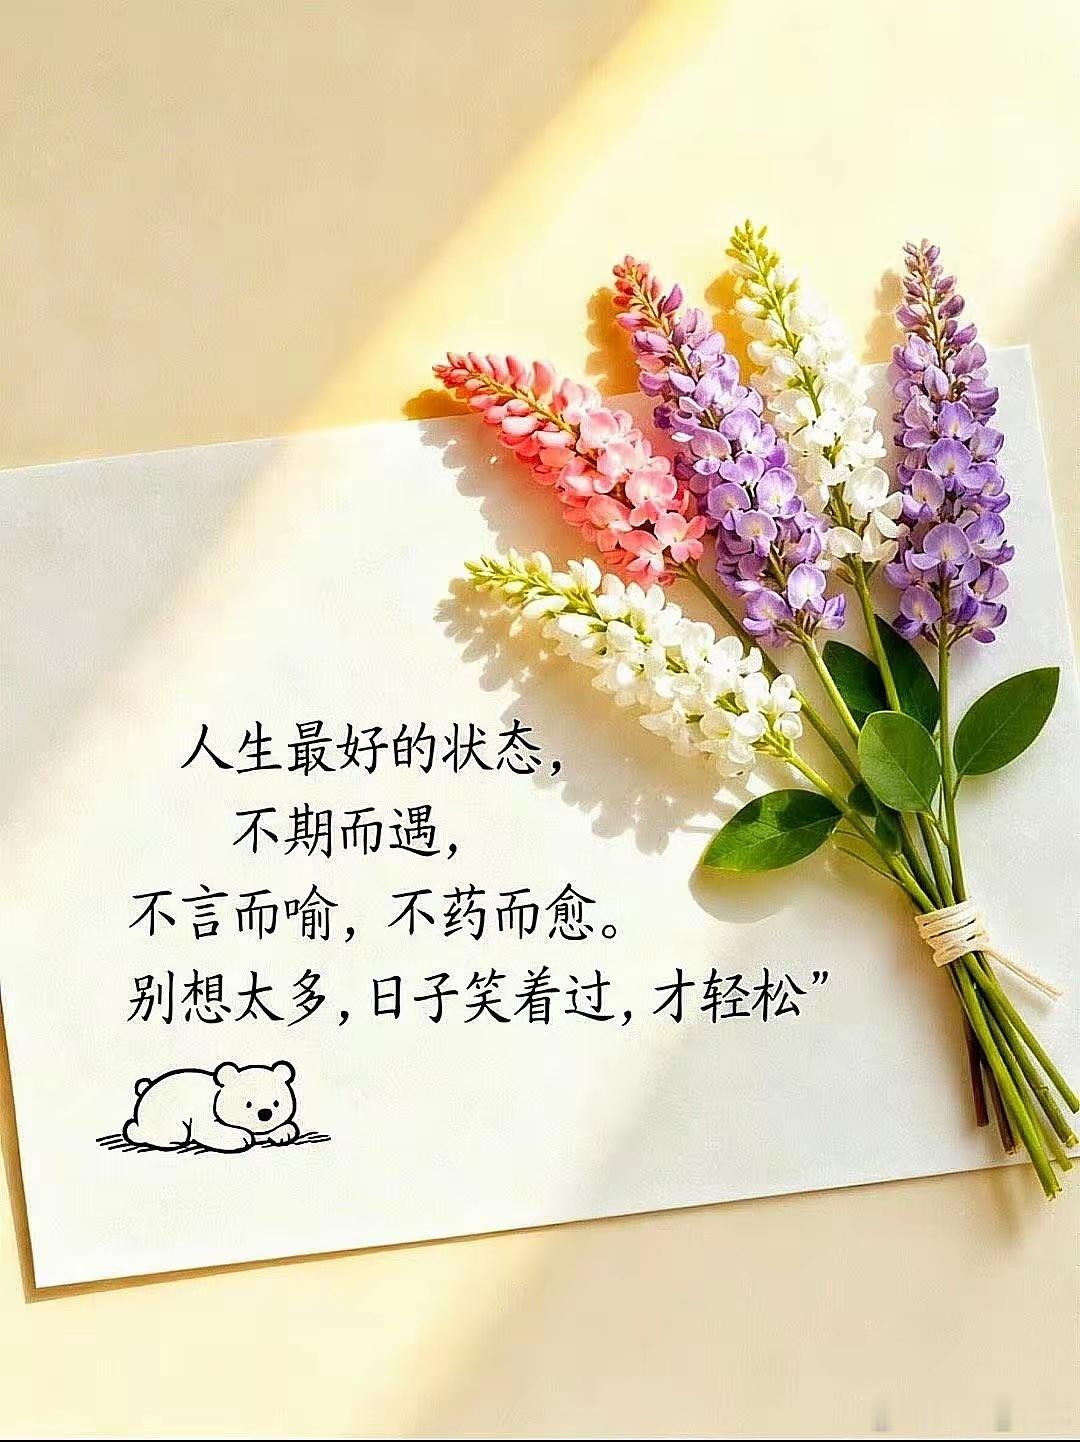 人生最好的状态，
不期而遇，
不言而喻，不药而愈。
别想太多，日子笑着过，才轻松”